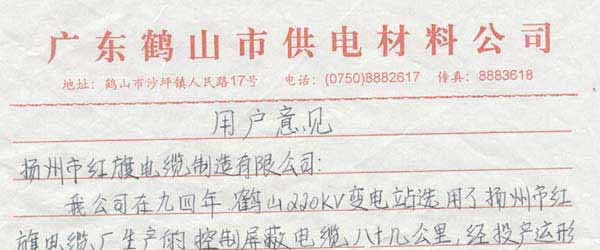 广东鹤山市供电材料公司
地址：鹤山市沙坪镇人民路17号 电话：(0750)8882617 传真：8883618
用户意见
扬州市红旗电缆制造有限公司：
我公司在九四年鹤山220KV变电站选用了扬州市红
旗电缆厂生产的控制屏蔽电缆八十几公里，经投产运形